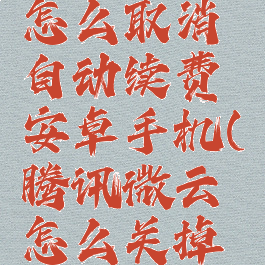 怎么取消
自动续费
安卓手机(
腾讯微云
怎么关掉